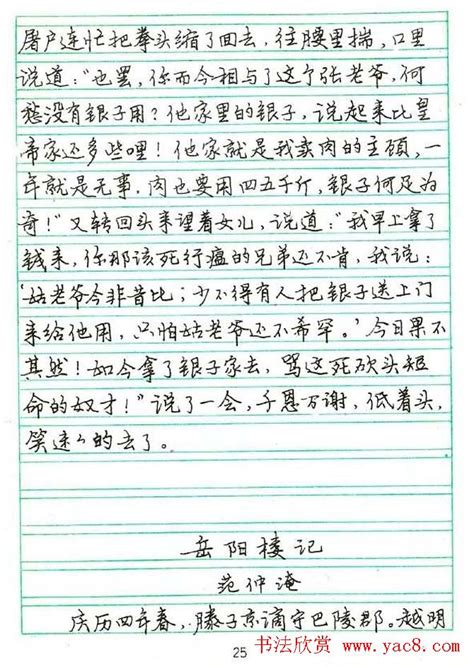 屠户连忙把拳头缩了回去，往腰里揣，口里
说道："也罢，你而今相与了这个张老爷，何
愁没有银子用？他家里的银子，说起来比皇
帝家还多些哩！他家就是我卖肉的主顾，一
年就是无事，肉也要用四五千斤，银子何足为
奇！"又转回头来望着女儿，说道："我早上拿了
钱来，你那该死行瘟的兄弟还不肯，我说：
'姑老爷今非昔比；少不得有人把银子送上门
来给他用，只怕姑老爷还不希罕。'今日果不
其然！如今拿了银子家去，骂这死砍头短
命的奴才！"说了一会，千恩万谢，低着头，
笑迷々的去了。
岳阳楼记
范仲淹
庆历四年春，滕子京谪守巴陵郡。越明
25
书法欣赏 www.yac8.com